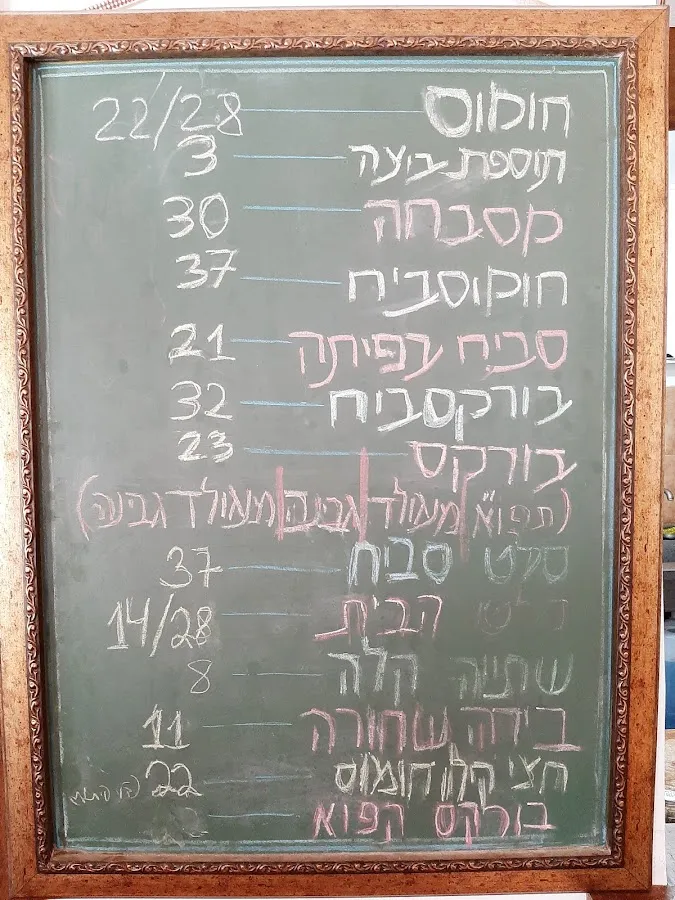 חומוס 22/28
תוספת ביצה 3
מסבחה 30
חומוסביח 37
סביח בפיתה 21
בורקסביח 32
בורקס 23
(תפו"א | מנגולד | גבינה | מנגולד גבינה)
סלט סביח 37
הבית 14/28
שתייה קלה 8
בירה שחורה 11
חצי קילו חומוס 22
בורקס קפוא